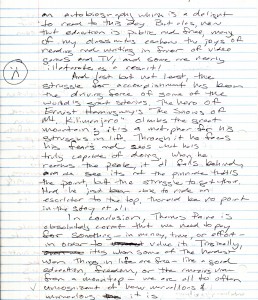 an autobiography which is a delight
to read to this day. But alas, now
that education is public and free, many
of my classmates eschew the joys of
reading and writing in favor of video
games and TV, and some are nearly
illiterate as a result!
And last but not least, the
struggle for accomplishment has been
the driving force of some of the
world's great stories. The hero of
Ernest Hemingway's "The Snows of
Mt. Kilimanjaro" climbs the great
mountain; it's a metaphor for his
struggle in life. Through it he faces
his fears and sees what he is
truly capable of doing. When he
reaches the peak, it all falls behind,
and we see it's not the pinnacle that's
the point, but the struggle to get there.
Had he just been able to ride an
escalator to the top, there'd be no point
in the story at all.
In conclusion, Thomas Paine is
absolutely correct that we need to pay
for something - in money, time, or effort -
in order to value it. Tragically,
when some of the
Things in life are free - like a good
education, freedom, or the
from a mountaintop - we are all to often
unconscious of how
it is.